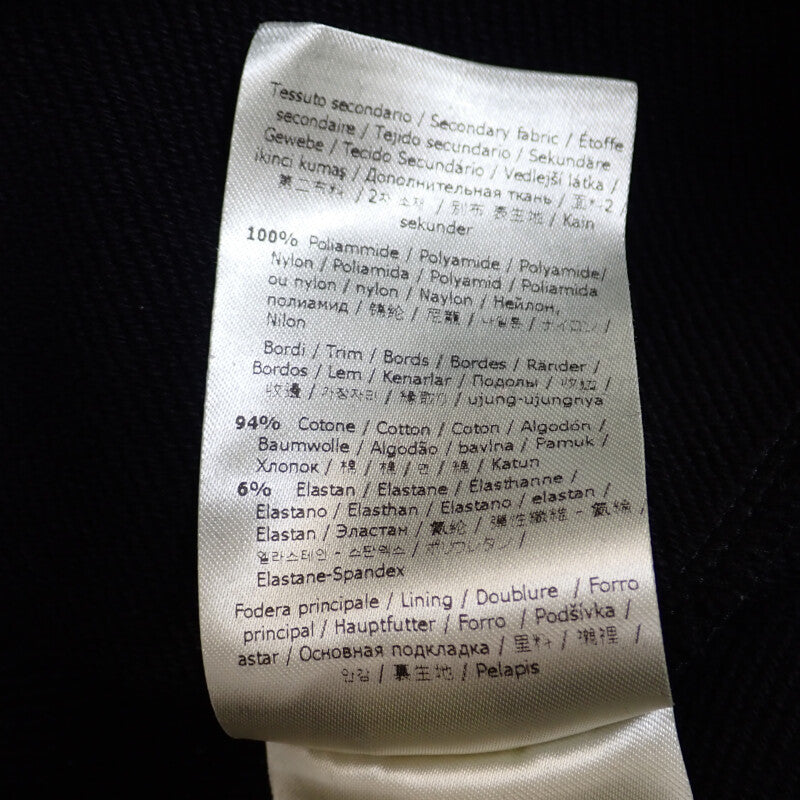 Tessuto secondario / Secondary fabric / Étoffe
secondaire / Tejido secundario / Sekundäre
Gewebe / Tecido Secundário / Vedlejší látka /
ikinci kumaş / Дополнительная ткань / 面料-2
第二布料 / 2차 소재 / 別布 表生地 / Kain
sekunder
100% Poliammide / Polyamide / Polyamide/
Nylon / Poliamida / Polyamid / Poliamida
ou nylon / nylon / Naylon / Нейлон,
полиамид / 锦纶 / 尼龍 / 나일론 / ナイロン /
Nilon
Bordi / Trim / Bords / Bordes / Ränder /
Bordos / Lem / Kenarlar / Подолы / 收边 /
收邊 / 가장자리 / 縁取り / ujung-ujungnya
94% Cotone / Cotton / Coton / Algodón /
Baumwolle / Algodão / bavlna / Pamuk /
Хлопок / 棉 / 棉 / 면 / 綿 / Katun
6% Elastan / Elastane / Élasthanne /
Elastano / Elasthan / Elastano / elastan /
Elastan / Эластан / 氨纶 / 彈性纖維 - 氨綸 /
엘라스테인 - 스판덱스 / ポリウレタン /
Elastane-Spandex
Fodera principale / Lining / Doublure / Forro
principal / Hauptfutter / Forro / Podšívka /
astar / Основная подкладка / 里料 / 襯裡 /
안감 / 裏生地 / Pelapis